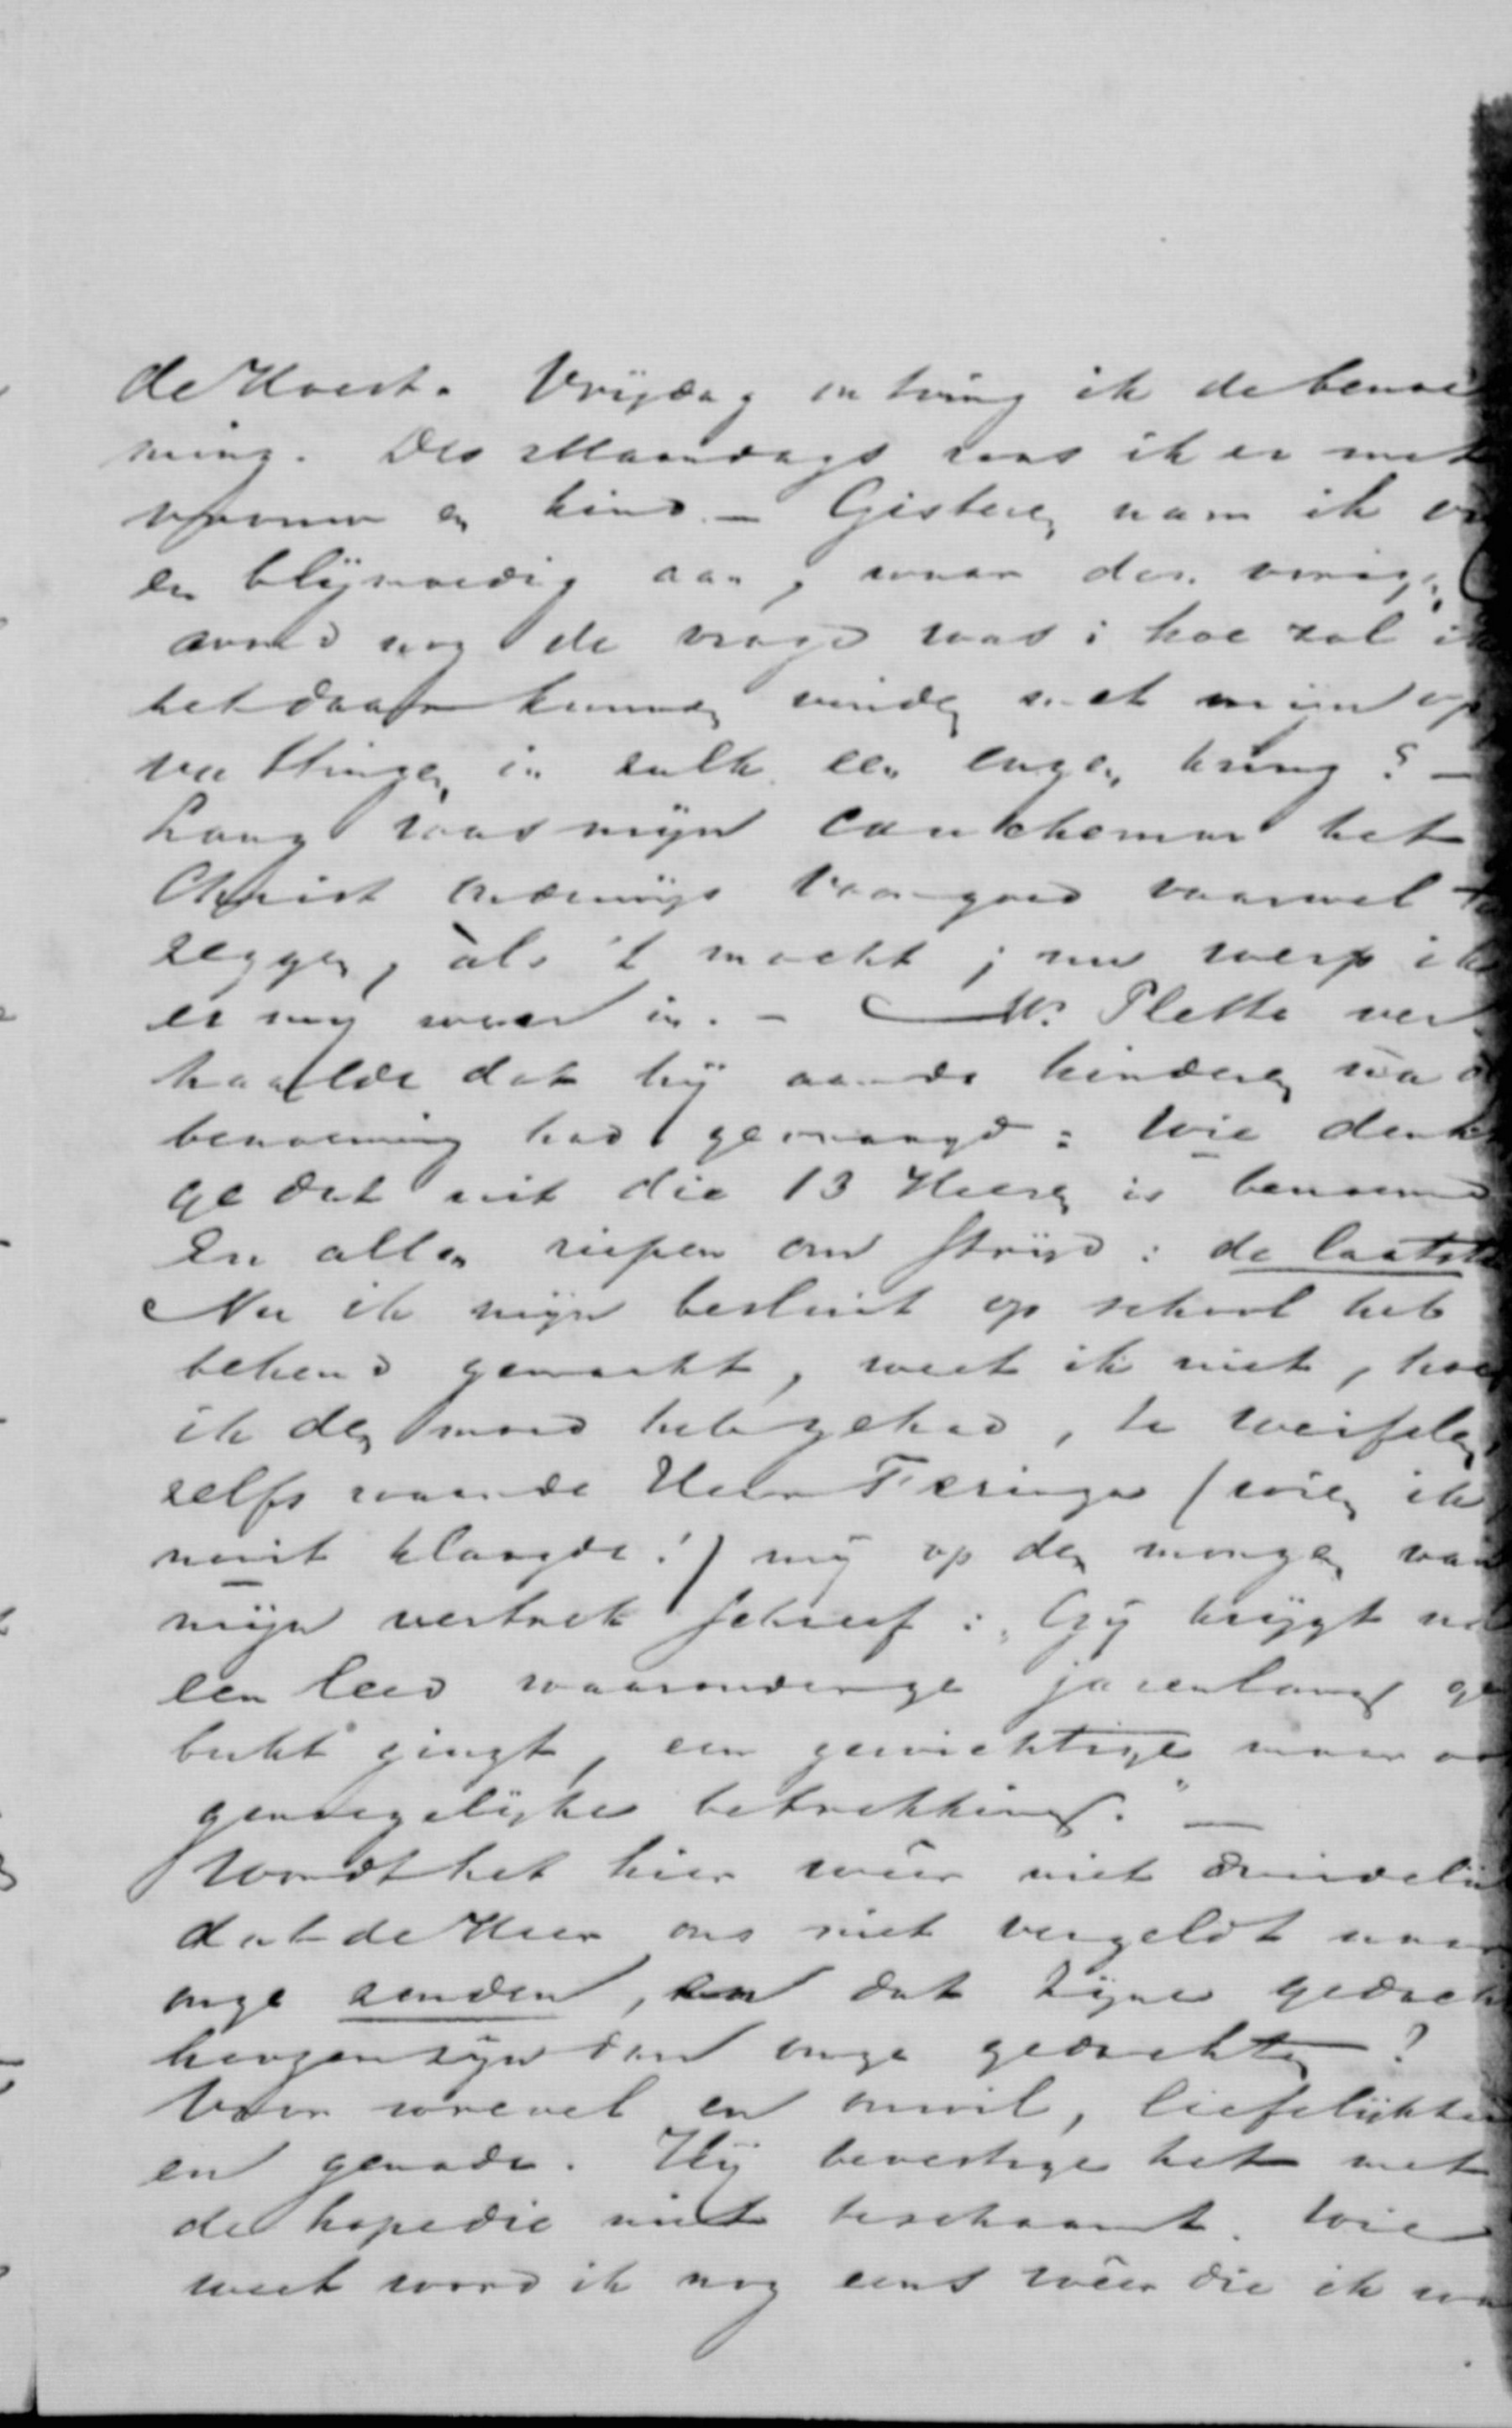 de Koest. Vrijdag ontving ik de benoe
ming. Des Maandags was ik er met
vrouw en kind. — Gisteren nam ik
en blijmoedig aan, maar den vorigen
avond nog de vraag was: hoe zal ik
het daar kunnen vinden met mijn op
vattingen in zulk een engen kring? —
Lang was mijn cauchemar het
Christ onderwijs voorgoed vaarwel te
zeggen, als 't mocht; nu werp ik
er mij weer in. — Mr. Plette ver
haalde dat hij aan de kinderen na de
benoeming had gevraagd: Wie denkt
ge dat uit die 13 Heeren is benoemd
En allen riepen om strijd: de laatste
Nu ik mijn besluit op school heb
bekend gemaakt, weet ik niet, hoe
ik den moed heb gehad, te weifelen,
zelfs waar de Heer Feringa (wien ik
nooit klaagde!) mij op den morgen van
mijn vertrek schreef: „Gij krijgt na
een leed waaronder ge jarenlang ge
bukt gingt, een gewichtige maar
genoegelijke betrekking." —
Wordt het hier weêr niet duidelijk
dat de Heer ons niet vergeldt naar
onze zonden, en dat Zijne gedach
hooger zijn dan onze gedachten?
Voor wrevel en onwil, liefelijkheid
en genade. Hij bevestige het met
de hope die niet beschaamt. Wie
weet word ik nog eens weêr die ik was